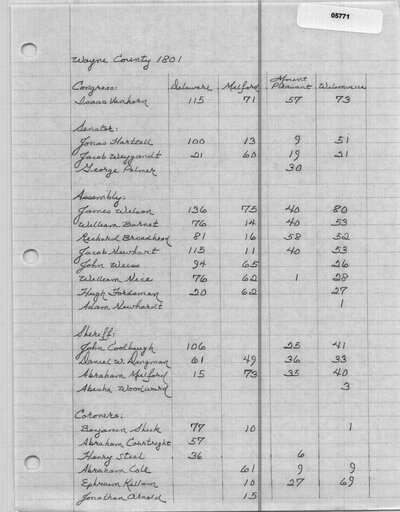 05771
Wayne County 1801
Congress: Delaware Milford Mount Pleasant Wilsonville
Isaac Vanhorn 115 71 57 73
Senator:
Jonas Hartzell 100 13 9 51
Jacob Weygandt 21 60 19 21
George Palmer 30
Assembly:
James Wilson 136 75 40 80
William Barnet 76 14 40 53
Richard Broadhead 81 16 58 52
Jacob Newhart 115 11 40 53
John Weiss 94 65 26
William Nice 76 62 1 28
Hugh Fordsman 20 62 27
Adam Newhardt 1
Sheriff:
John Coolbaugh 106 25 41
Daniel W. Dingman 61 49 36 33
Abraham Milford 15 73 35 40
Abisha Woodward 3
Coroners:
Benjamin Shuk 77 10 1
Abraham Courtright 57
Henry Steel 36 6
Abraham Cole 61 9 9
Ephraim Killam 10 27 69
Jonathan Arnold 15